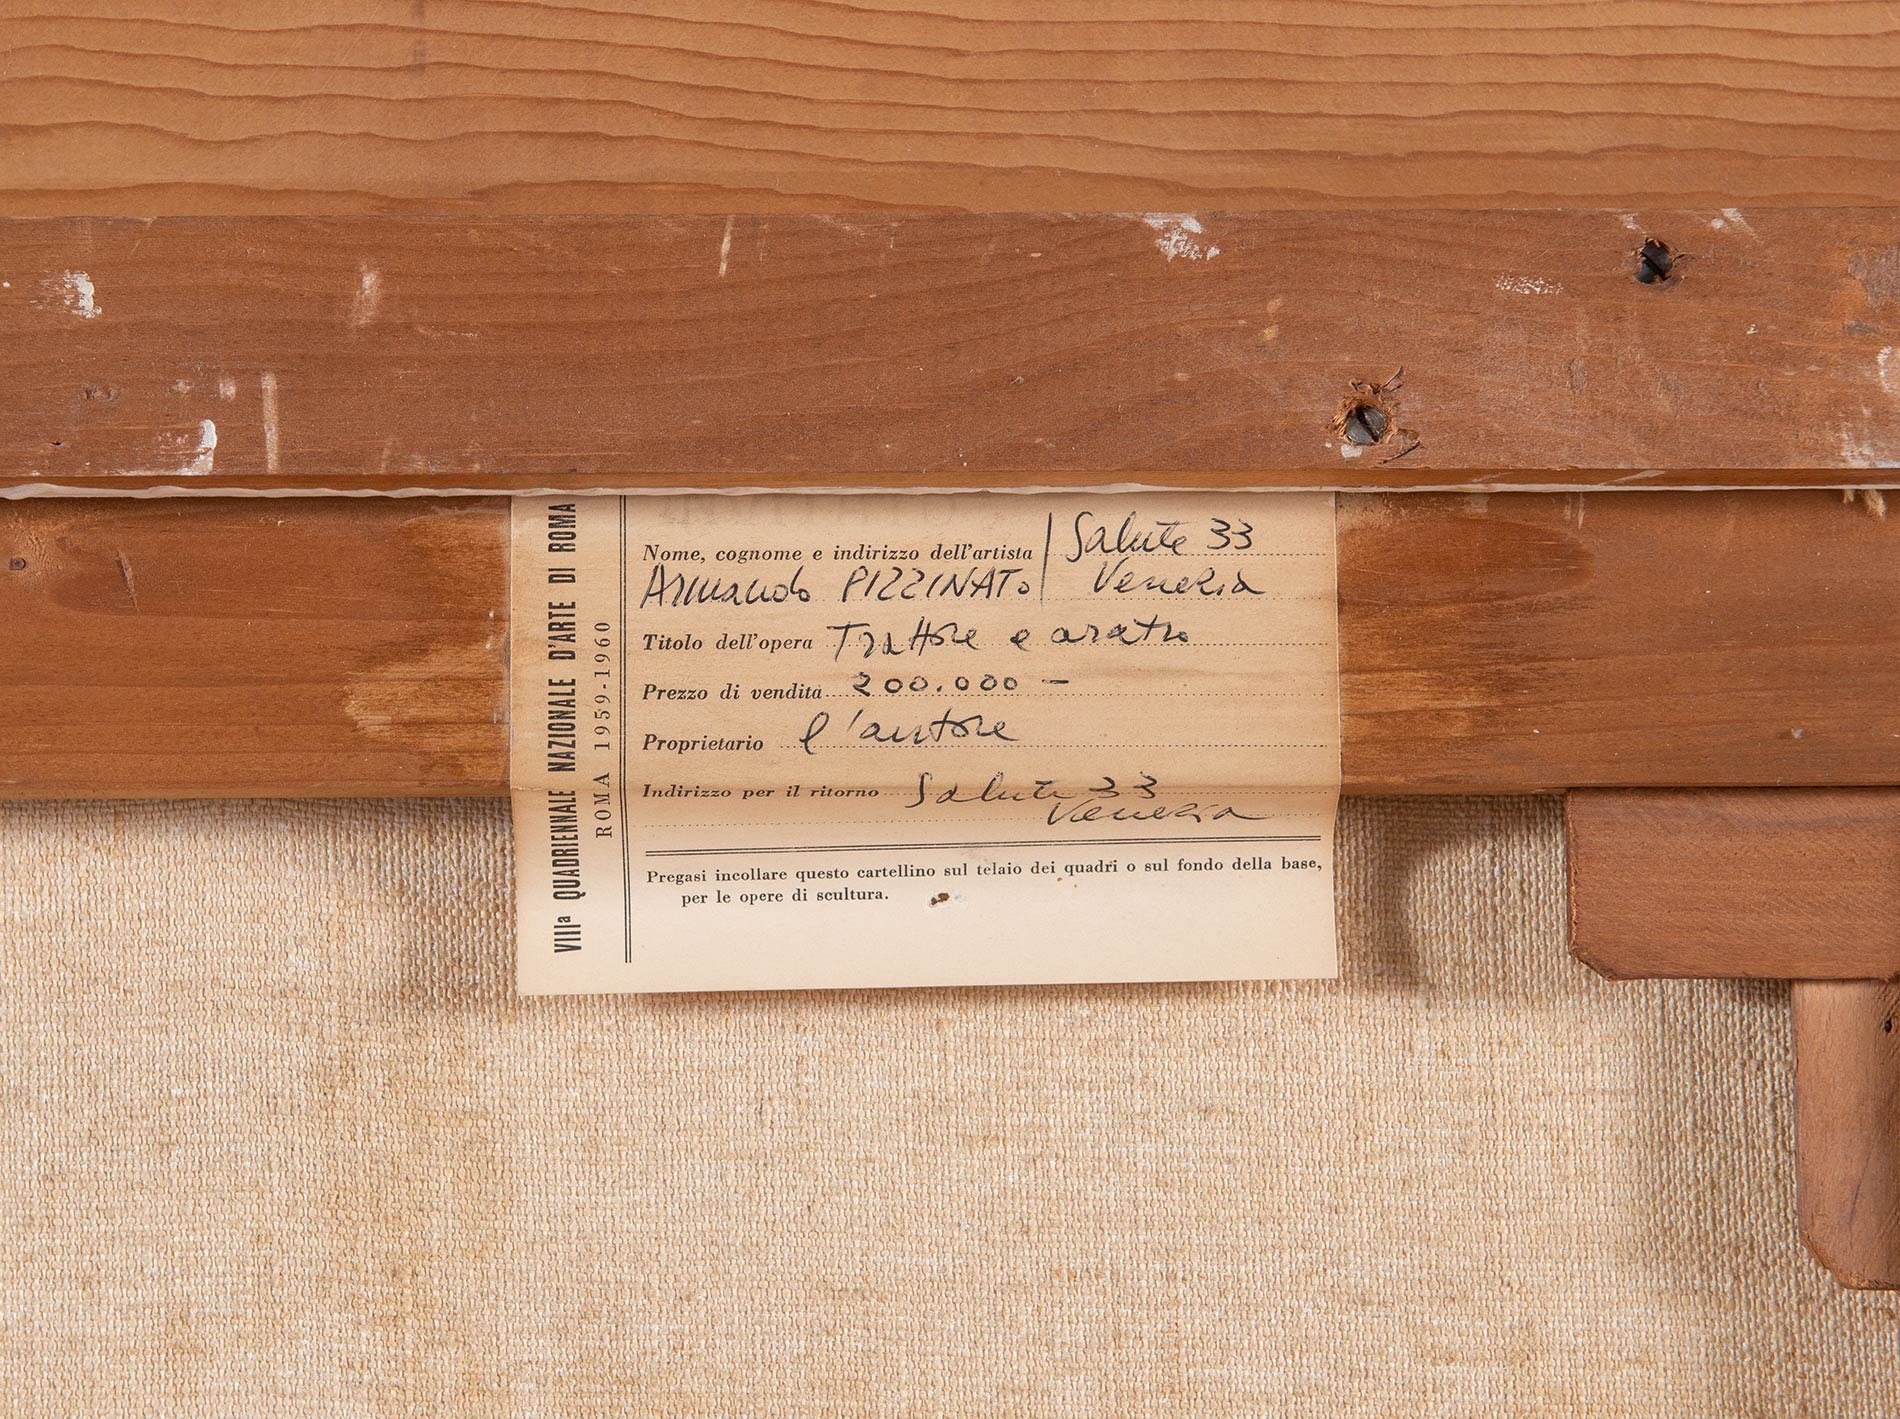 VIIIª QUADRIENNALE NAZIONALE D'ARTE DI ROMA
ROMA 1959-1960
Nome, cognome e indirizzo dell'artista | Salute 33
Armando PIZZINATO | Venezia
Titolo dell'opera Trattore e aratro
Prezzo di vendita 200.000 —
Proprietario l'autore
Indirizzo per il ritorno Salute 33
Venezia
Pregasi incollare questo cartellino sul telaio dei quadri o sul fondo della base,
per le opere di scultura.